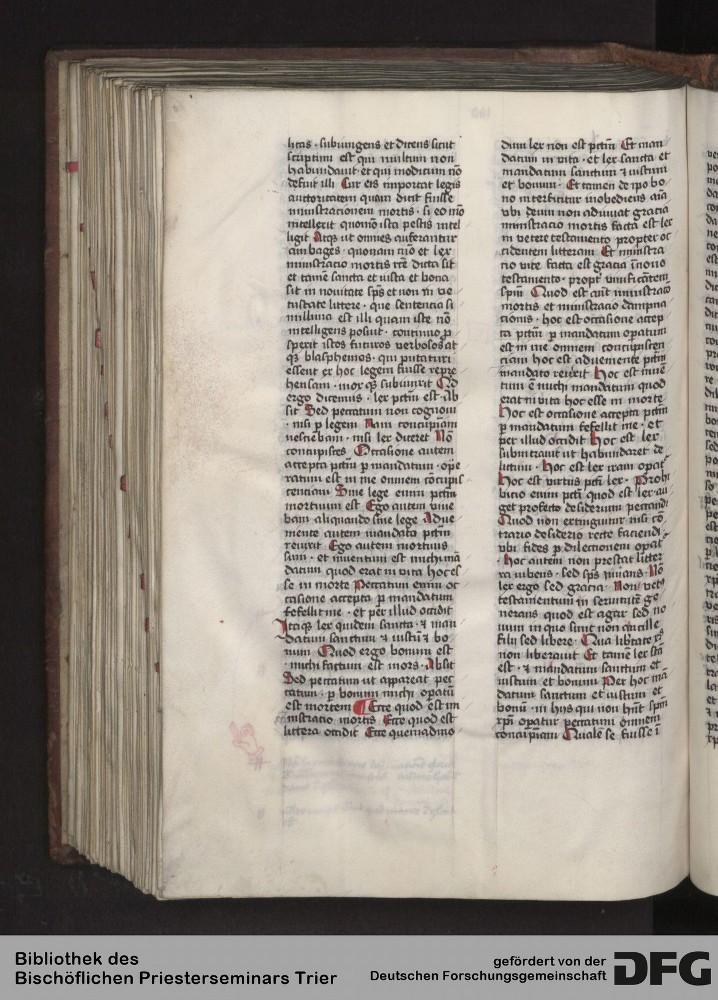 litas · subiungens et dicens sicut
scriptum est qui multum non
habundauit · et qui modicum nō
defuit illi Cur eis importat legis
auctoritatem quam dicit fuisse
ministracionem mortis · si eo mō
intellexit quomō ista pestis intel
ligit Atqꝫ ut omnes auferantur
ambages · quonam mō et lex
ministracio mortis rcē dicta sit
et tamē sancta et iusta et bona
sit in nouitate sp̄s et non in ve
tustate littere · que sentencia si
millima est illi quam iste nō
intelligens posuit · continuo ꝓ
spexit istos futuros verbosos at
qꝫ blasphemos · qui putaturi
essent ex hoc legem fuisse repre
hensam · mox qꝫ subiunxit Qd
ergo dicemus · lex pctm̄ est · Ab
sit Sed peccatum non cognoui
· nisi ꝑ legem Nam concupiām
nesciebam · nisi lex diceret Nō
concupisces Occasione autem
accepta pctm̄ ꝑ mandatum · opē
ratum est in me omnem cōcupis
cenciam Sine lege enim pctm̄
mortuum est Ego autem viue
bam aliquando sine lege Adue
niente autem mandato pctm̄
reuixit Ego autem mortuus
sum · et inuentum est michi mā
datum quod erat in vita hoc es
se in morte Peccatum enim oc
casione accepta ꝑ mandatum
fefellit me · et per illud occidit
Itaqꝫ lex quidem sancta · ⁊ man
datum sanctum ⁊ iustū ⁊ bo
num Quod ergo bonum est
· michi factum est mors · Absit
Sed peccatum ut appareat pec
catum · ꝑ bonum michi opatū
est mortem Ecce quod est mi
nistracio mortis Ecce quod est
littera occidit Ecce quemadmo
dum lex non est pctm̄ Et man
datum in vita · et lex sancta et
mandatum sanctum ⁊ iustum
et bonum · Et tamen de ipo bo
no interficitur inobediens aīa
vbi deum non adiuuat gracia
ministracio mortis facta est lex
in vetere testamento propter oc
cidentem litteram Et ministra
cio vite facta est gracia ī nouo
testamento · propt̄ viuificantem
spm̄ Quod est aut̄ ministracō
mortis et ministracio dampna
cionis · hoc est occasione accep
ta pctm̄ ꝑ mandatum opatum
est in me omnem concupiscen
ciam hoc est adueniente pctm̄
mandato reuixit hoc est inuē
tum ē michi mandatum quod
erat in vita hoc esse in morte
hoc est occasione accepta pctm̄
ꝑ mandatum fefellit me · et
per illud occidit hoc est lex
subintrauit ut habundaret de
lictum · hoc est lex iram opat̄
hoc est virtus pcti lex · Prohi
bicio enim pcti quod est lex · au
get profecto desiderium peccandi
Quod non extinguitur nisi cō
trario desiderio recte faciendi
vbi fides ꝑ dilectionem opat̄
· hoc autem non prestat litter
ra iubens · sed sp̄s iuuans · Nō
lex ergo sed gracia · Non vet̄
testamentum in seruitutē ge
nerans quod est agar sed no
uum in quo sunt non ancille
filij sed libere · Qua lib̄tate xp̄s
non liberauit Et tamē lex scā
est · ⁊ mandatum sanctum et
iustum et bonum Per hoc mā
datum sanctum et iustum et
bonū · in hijs qui non hn̄t spm̄
xp̄i opatur peccatum omnem
concupiām Quale se fuisse ī
Bibliothek des
Bischöflichen Priesterseminars Trier
gefördert von der
Deutschen Forschungsgemeinschaft
DFG